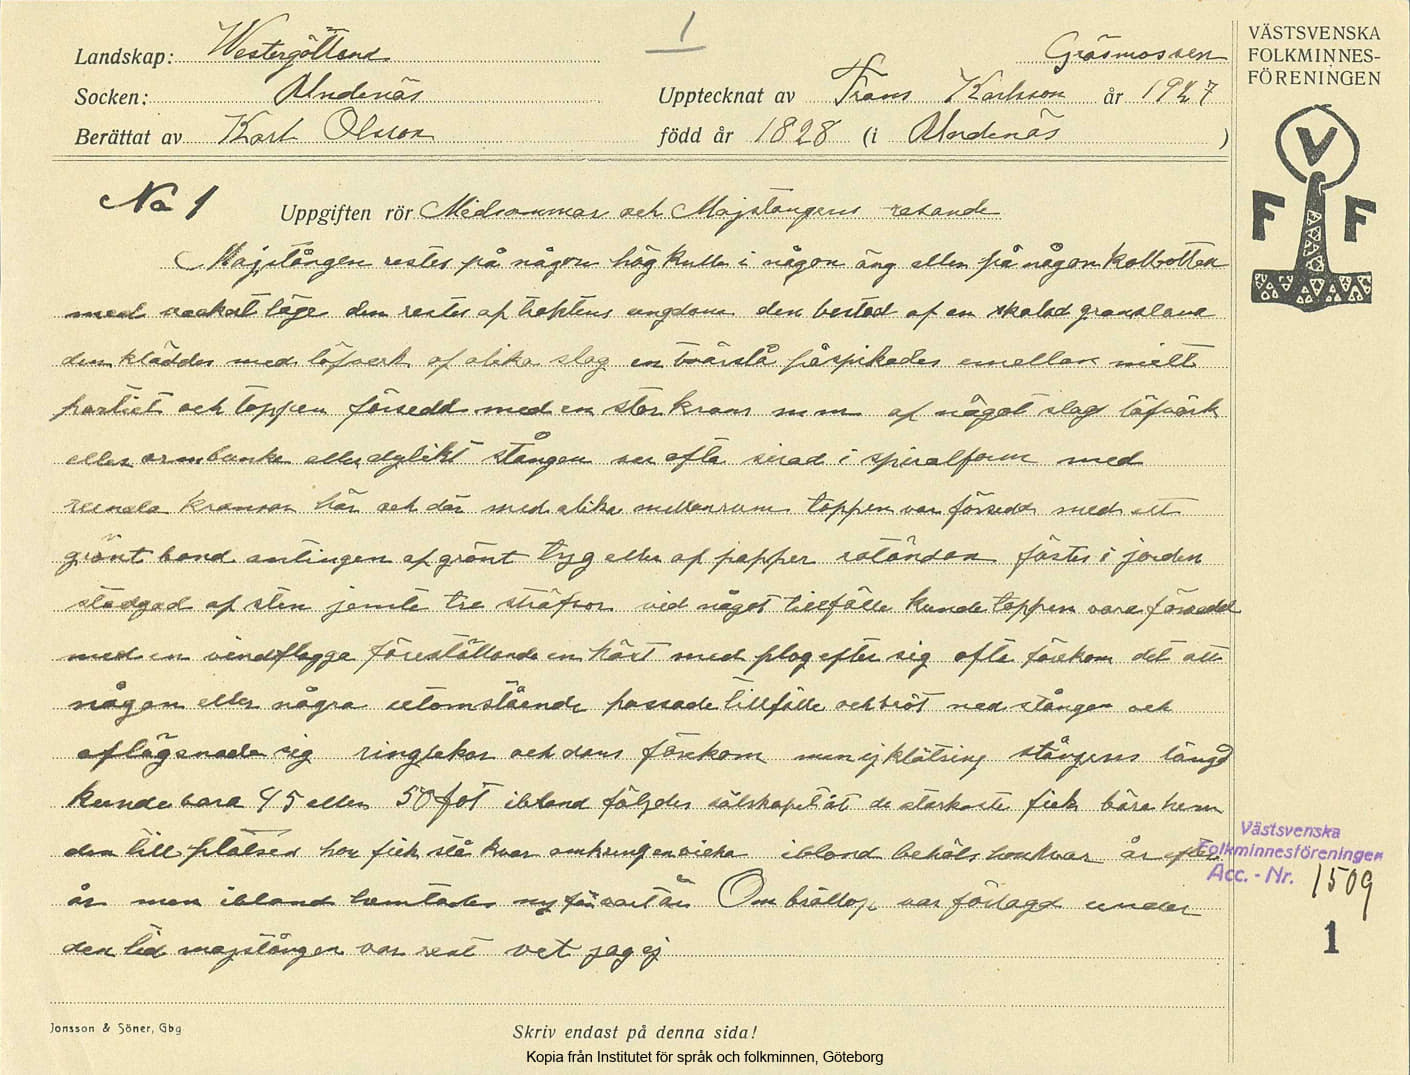 1
Landskap: Westergötland Gräsmossen
Socken: Undenäs Upptecknat av Frans Karlsson år 1927
Berättat av Karl Olsson född år 1828 (i Undenäs )
VÄSTSVENSKA
FOLKMINNES-
FÖRENINGEN
V
F F
No 1 Uppgiften rör Midsommar och Majstångens resande
Majstången restes på någon hög kulle i någon äng eller på någon kolbotten
med vackert läge den restes af traktens ungdom den bestod af en skalad granslana
den kläddes med löfverk af olika slag en tvärslå påspikades emellan mitt
partiet och toppen försedd med en stor krans m m af något slag löfvärk
eller ormbunke eller dylikt stången var ofta sirad i spiralform med
runda kransar här och där med olika mellanrum toppen var försedd med ett
grönt band antingen af grönt tyg eller af papper rotändan fästes i jorden
stadgad af sten jemte tre sträfvor vid något tillfälle kunde toppen vara försedd
med en vindflagga föreställande en häst med plog efter sig ofta förekom det att
någon eller några utomstående passade tillfälle och bröt ned stången och
aflägsnade sig ringlekar och dans förekom men ej klätring stångens längd
kunde vara 45 eller 50 fot ibland följdes sälskapet åt de starkaste fick bära hem
den till platsen hon fick stå kvar omkring en vicka ibland behöls hon kvar år efter
år men ibland hemtades ny för vart år Om bröllop var förlagd under
den tid majstången var rest vet jag ej
Västsvenska
Folkminnesföreningen
Acc. - Nr. 1509
1
Jonsson & Söner, Gbg
Skriv endast på denna sida!
Kopia från Institutet för språk och folkminnen, Göteborg